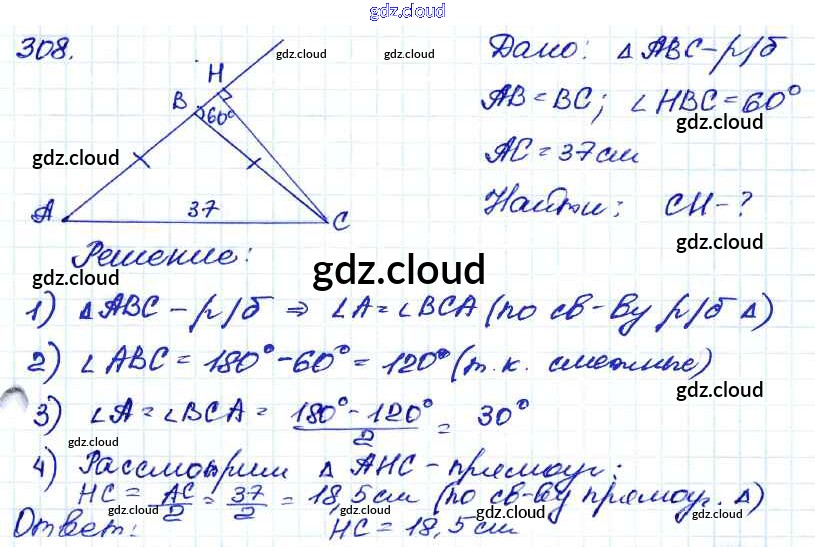 gdz.cloud
308.
gdz.cloud
H
B
60°
gdz.cloud
37
A
C
Дано: Δ ABC – р/б
gdz.cloud
AB = BC; ∠ HBC = 60°
gdz.cloud
AC = 37 см
Найти: CH - ?
gdz.cloud
Решение:
gdz.cloud
gdz.cloud
gdz.cloud
1) Δ ABC – р/б ⇒ ∠A = ∠BCA (по св-ву р/б Δ)
2) ∠ ABC = 180° - 60° = 120° (т. к. смежные)
gdz.cloud
3) ∠A = ∠BCA = (180° - 120°)/2 = 30°
gdz.cloud
gdz.cloud
4) Рассмотрим Δ AHC – прямоуг.:
HC = AC/2 = 37/2 = 18,5 см (по св-ву прямоуг. Δ)
gdz.cloud
gdz.cloud
Ответ: HC = 18,5 см